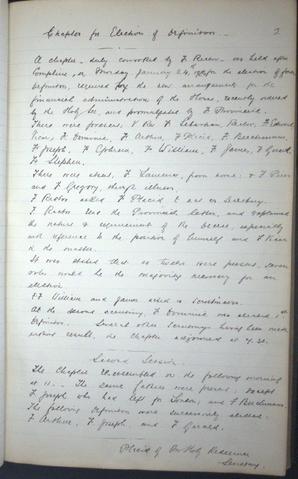 Chapter for Election of Definitors. 2
A chapter, duly convoked by F. Rector was held after
Compline, on Thursday January 24, for the election of four
Definitors, required by the new arrangements for the
financial administration of the House, recently ordered
by the Holy See, and promulgated by F. Provincial.
There were present, V. Rev. F. Rector, F. Edmund
Prior, F. Dominic, F. Arthur, F. Placid, F. Berchmans,
F. Joseph, F. Ephrem, F. William, F. James, F. Gerard,
F. Stephen.
There were absent, F. Laurence, from home; & F. Pius
and F. Gregory, through illness.
F. Rector asked F. Placid to act as Secretary.
F. Rector read the Provincial's letter, and explained
the nature & requirements of the Decree, especially
with reference to the position of himself and F. Prior
in the matter.
It was stated that as twelve were present, seven
votes would be the majority necessary for an
election.
F.F. William and James acted as Scrutineers.
At the second scrutiny, F. Dominic was elected 1st
Definitor. Several other scrutinies having been made
without result, the Chapter adjourned at 9.30.
Second Session.
The Chapter re-assembled on the following morning
at 11. The same fathers were present, except
F. Joseph who had left for London, and F. Berchmans.
The following Definitors were successively elected:
F. Arthur, F. Joseph, and F. Gerard.
Placid of Our Holy Redeemer
Secretary.